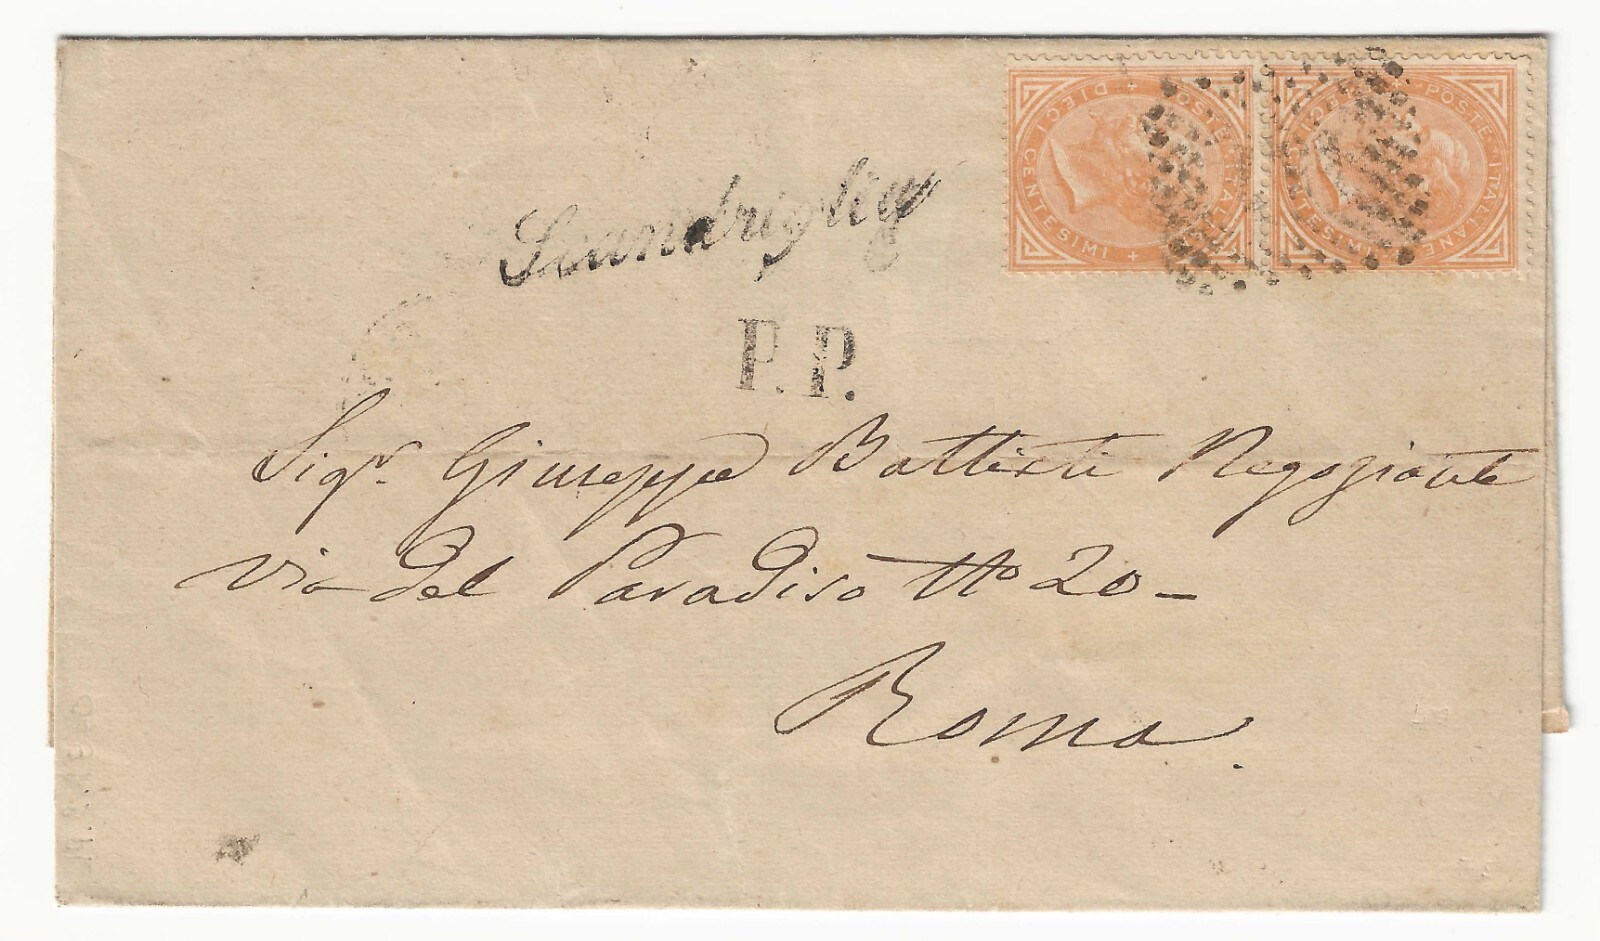 POSTE ITALIANE + DIECI CENTESIMI +
POSTE ITALIANE DIECI CENTESIMI
Scandriglia
P.P.
Sigr. Giuseppe Battisti Negoziante
Via del Paradiso No 20 –
Roma.